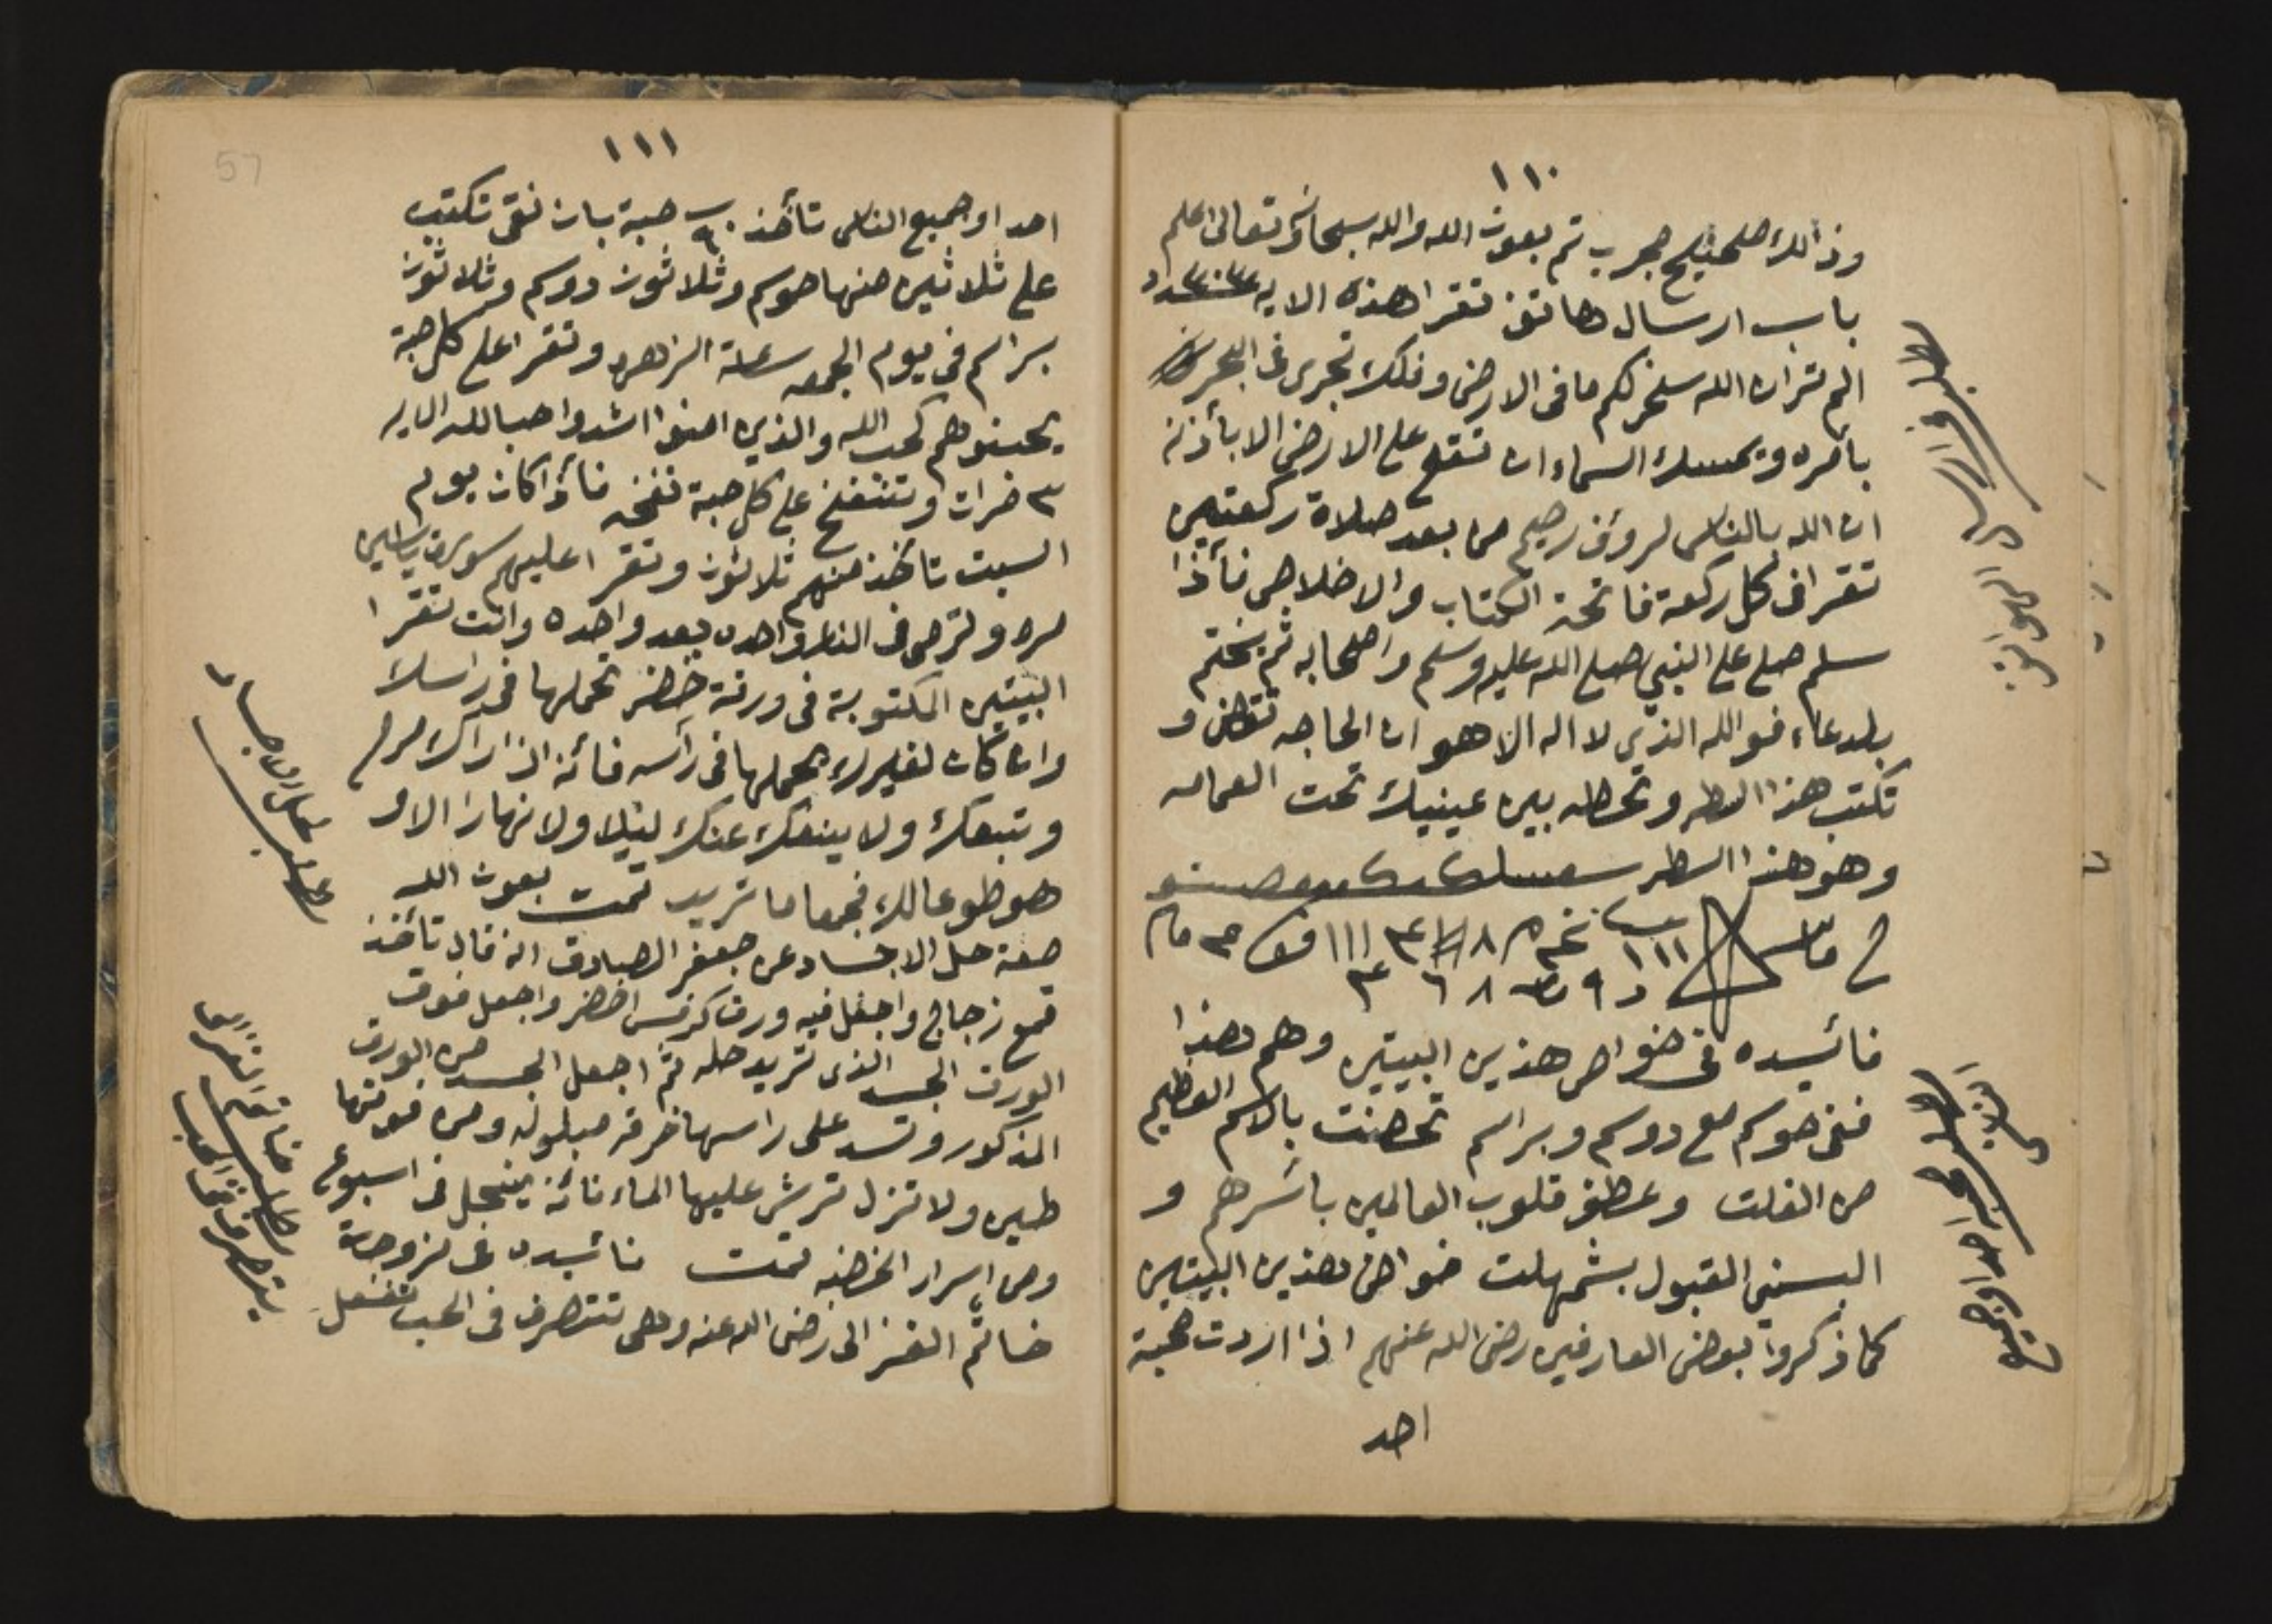 ١١٠
وذالك صحيح مجرب تم بعون الله والله سبحانه وتعالى اعلم
باب ارسال هاتف تقرا هذه الايه
الم تر ان الله سخر لكم ما فى الارض وفلك تجرى فى البحر
بامره ويمسك السماء ان تقع على الارض الا بأذنه
ان الله بالناس لرؤف رحيم من بعد صلاة ركعتين
تقرا فى كل ركعة فاتحة الكتاب والاخلاص فأذا
سلم صلى على النبي صلى الله عليه وسلم واصحابه ثم يختم
بلدعاء فوالله الذى لا اله الا هو ان الحاجه تقضى و
تكتب هذا السطر وتحطه بين عينيك تحت العمامه
وهو هذا السطر
فائيده فى خواص هذين البيتين وهم هذا
ففى حوكم مع دوكم وبراسم تحصنت بالاسم العظيم
من الفلت وعطف قلوب العالمين باسرهم و
البسني القبول بشمهلت خواص هذين البيتين
كما ذكروا بعض العارفين رضى الله عنهم اذا اردت محبة
احد
مطلب فى ارسال الهواتف
مطلب محبة احد او جميع
الناس
١١١
احد او جميع الناس تأخذ ٩٠ حبة بان نقى تكتب
على ثلاثين منها حوكم وثلاثون دوكم وثلاثون
براسم فى يوم الجمعه ساعة الزهره وتقرا على كل حبة
يحبونهم كحب الله والذين امنوا اشد حبا لله الايه
٣ مرات وتنفخ على كل حبة نفخه فأذا كان يوم
السبت تأخذ منهم ثلاثون وتقرا عليهم سورة ياسين
مره وترمى فى النار واحده بعد واحده وانت تقرا
البيتين المكتوبة فى ورقة خضر تحملها فى راسك
وان كان لغيرك يحملها فى رأسه فأنه اذا راك
وتبعك ولا ينفك عنك ليلا ولا نهارا الا و
هو طوعا لك فجمعا ما تريد تمت بعون الله
صفة حل الاجساد عن جعفر الصادق انه قال تأخذ
قمع زجاج واجعل فيه ورق كرفس اخضر واجعل فوق
الورق الجسد الذى تريد حله ثم اجعل الجسد من الورق
المذكور وتسد على راسها خرقه مبلوله ومن فوقها
طين ولا تزل ترش عليها الماء فأنه ينحل فى اسبوع
ومن اسرار الخضنه تمت فائيده فى لزوجة
خاتم الغزالى رضى الله عنه وهى تتصرف فى الحب تفعل
مطلب حل الاجساد
57